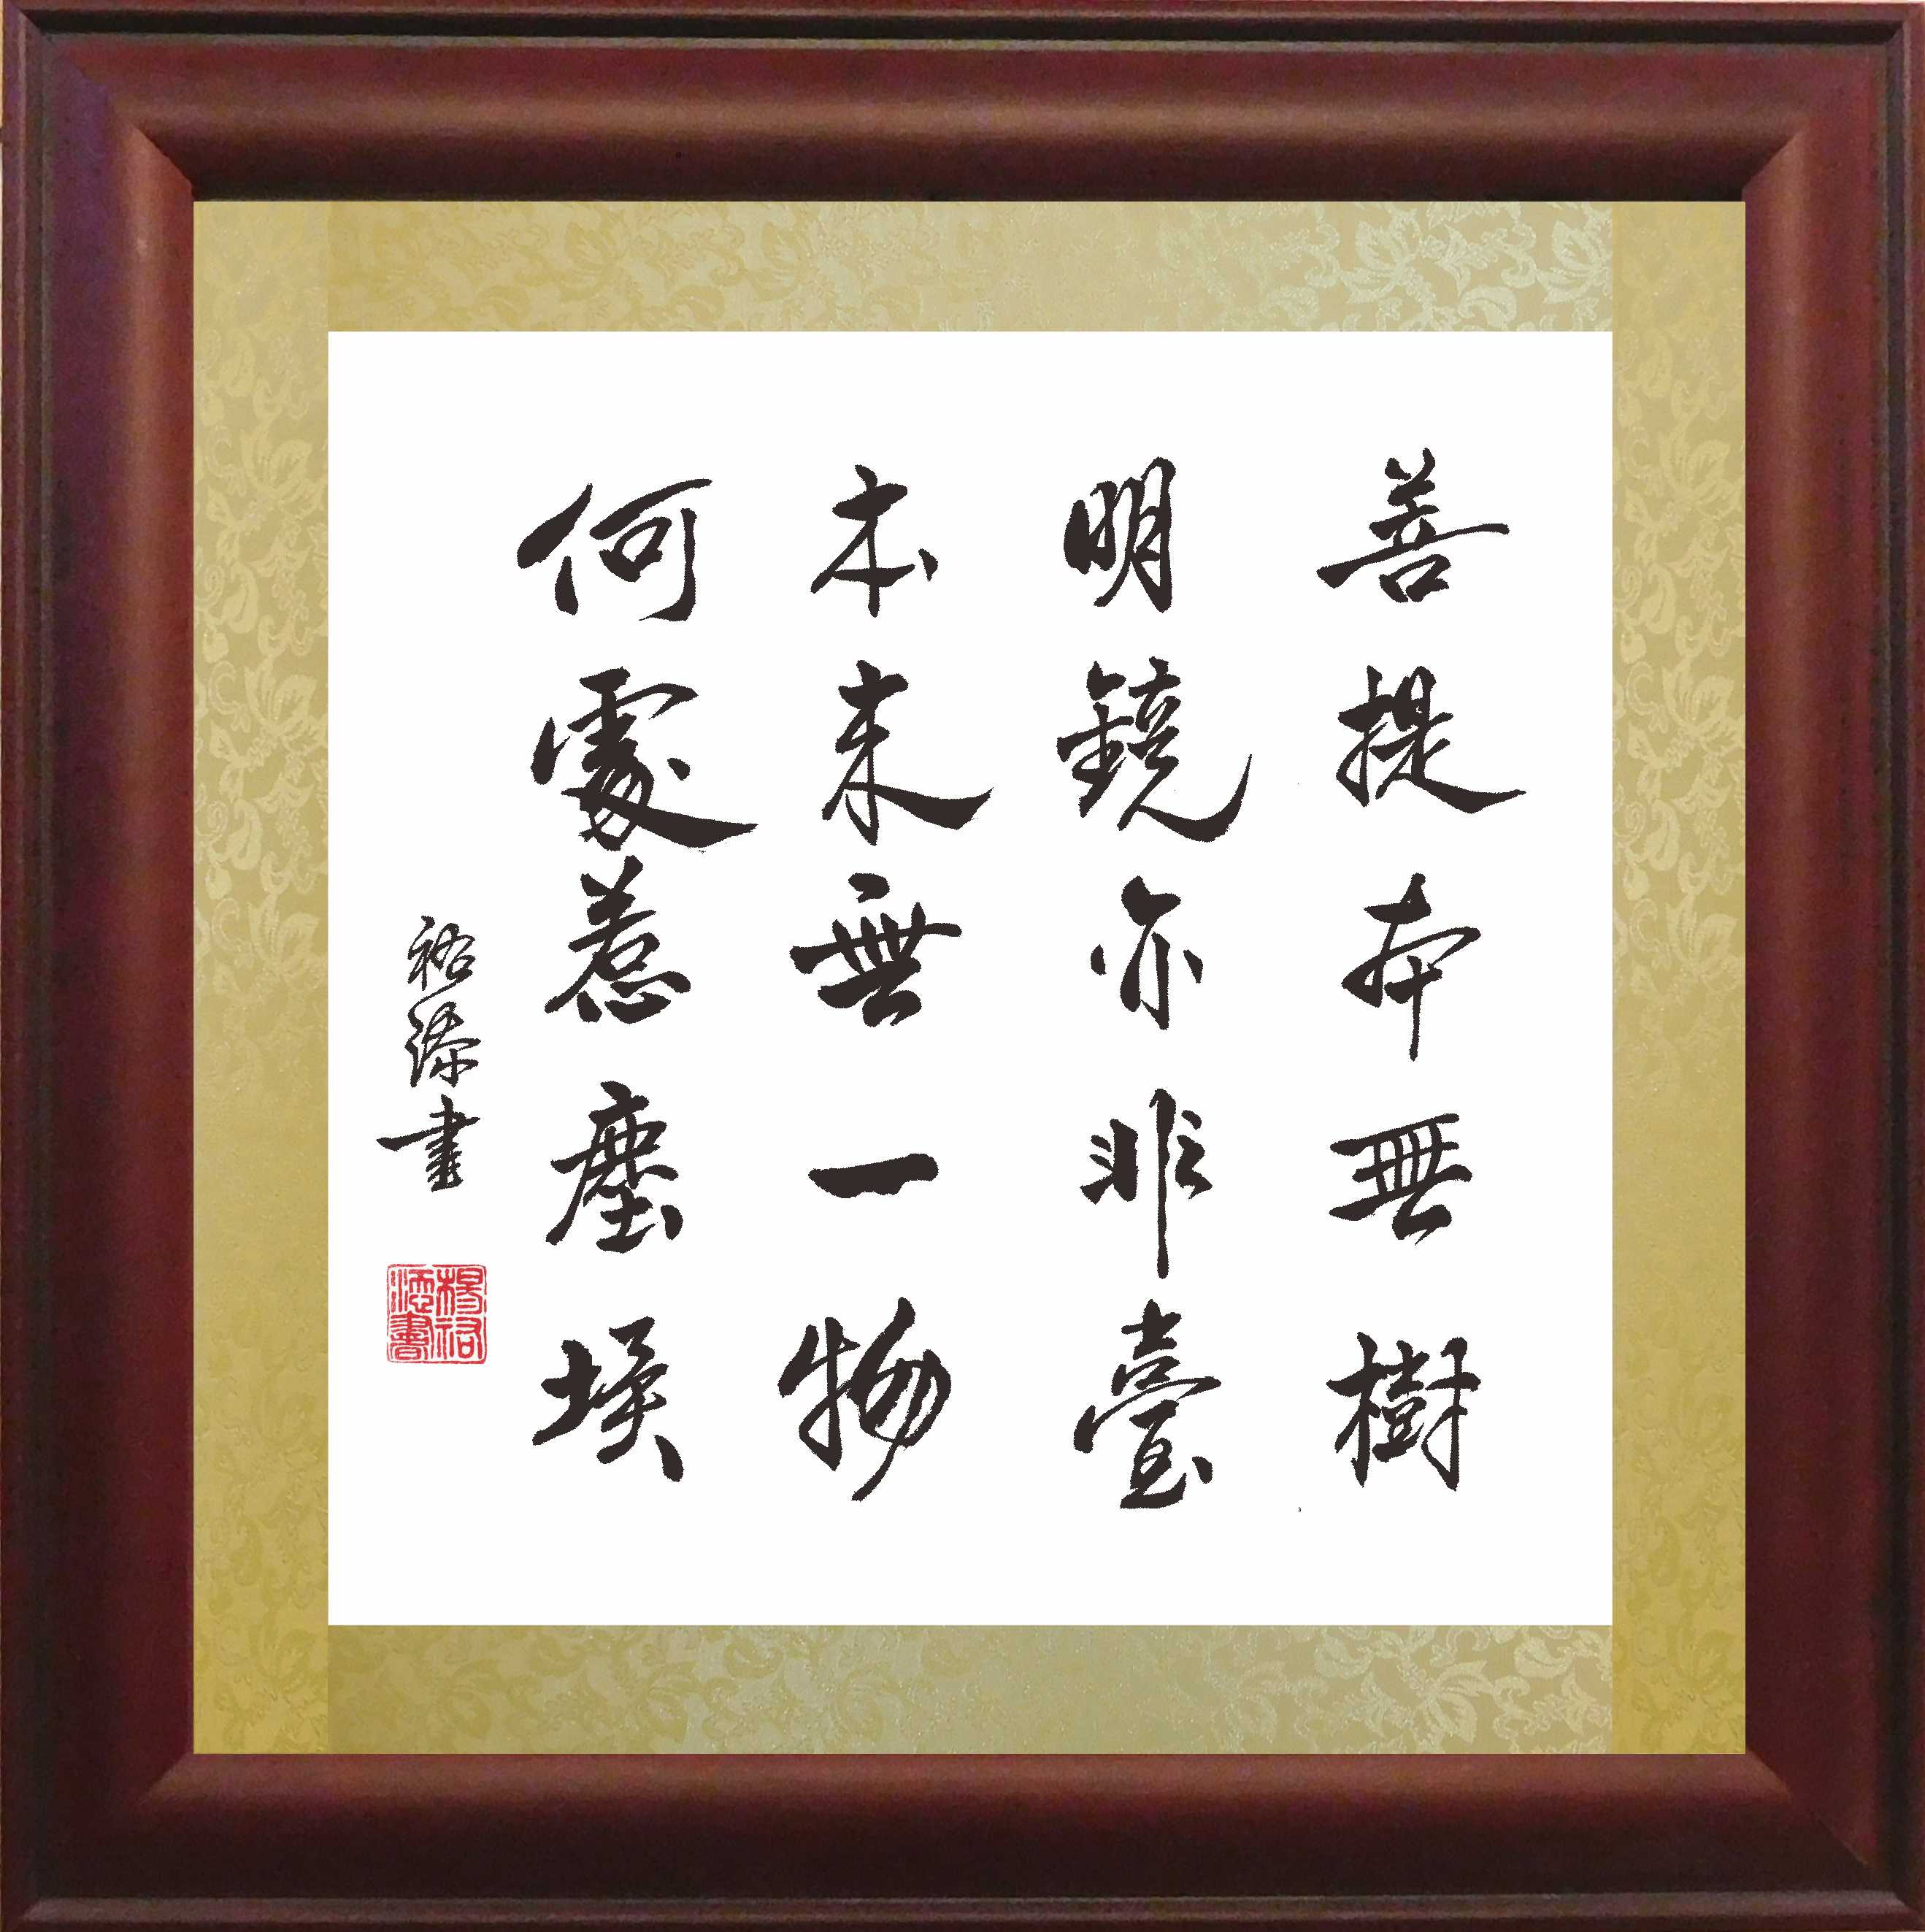 菩提本無樹
明鏡亦非臺
本来無一物
何處惹塵埃
裕添書
楊裕添書